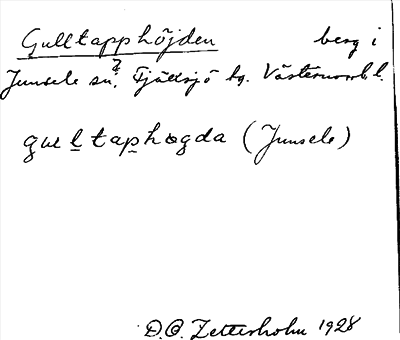 Gulltapphöjden berg i
Junsele sn? Fjällsjö tg. Västernorrl. l.
gul̲tap̲hogda (Junsele)
D.O. Zetterholm 1928